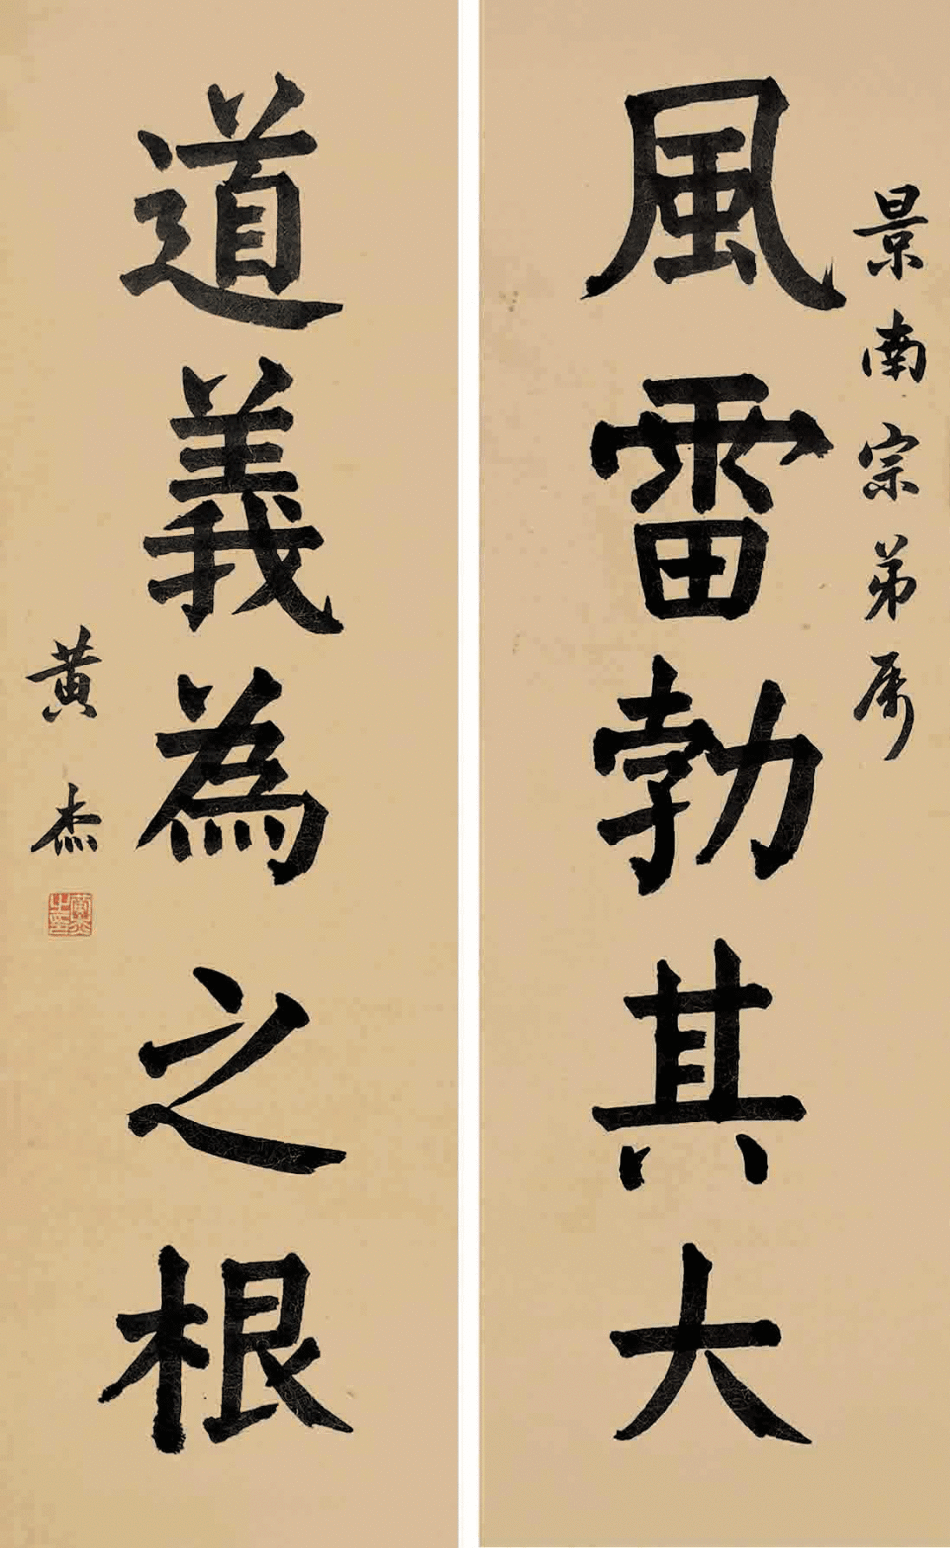 景南宗弟属
風雷勃其大
道義為之根
黄杰